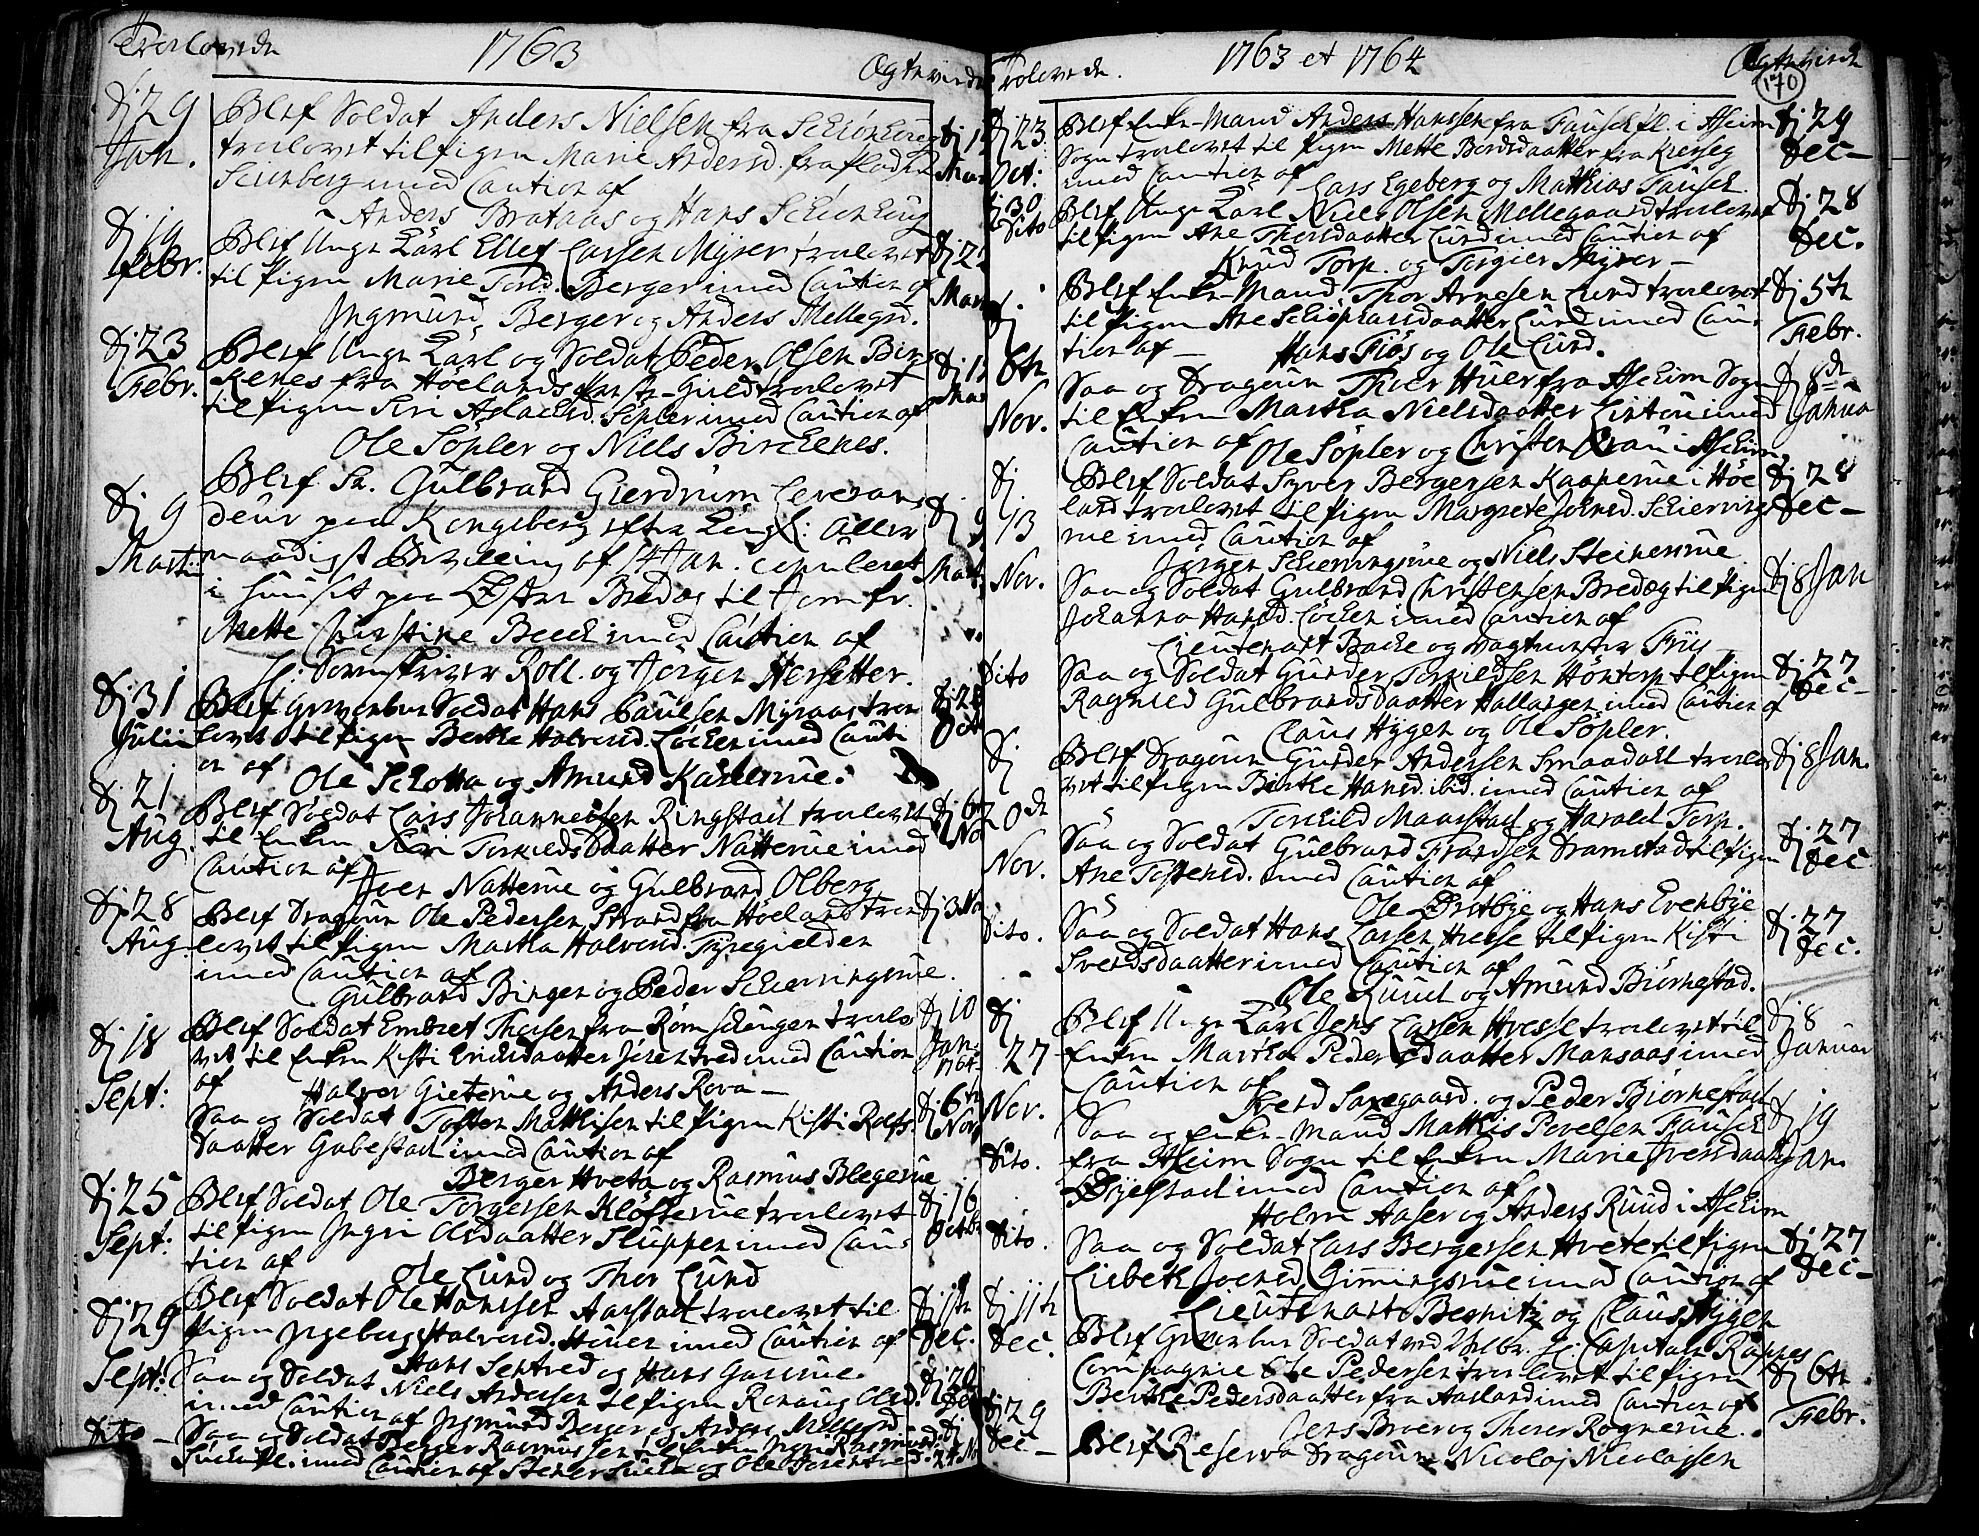 Trolovede 1763 Ægteviede
Dj 29 Jan.
Blef Soldat Anders Nielsen fra
trolovet til Pigen Marie Andersd. fra
med Caution af
Anders Brataas og Hans
Dj 19 Febr.
Blef Unge Karl Ellef Larsen Myrer trolovet
til Pigen Marie Tord. Berger med Caution af
Ingmund Berger og Anders Mellegrd.
Dj 23 Febr.
Blef Unge Karl og Soldat Peder Olsen Bir-
kenes fra Høelands trolovet
til Pigen Siri Aslachsd. Sopler med Caution af
Ole Søpler og Niels Birckenes.
Dj 9 Martii
Blef Sr. Gulbrand Gierdrum Leveran-
deur paa Kongsberg efter Kongl: Aller
naadigst Bevilling af 14 Jan. copuleret
i Huuset paa Østen Bredeg til Jomfr.
Mette Christine Beeck med Caution af
Hr. Sorenskriver Roll. og Jørgen Hersetter.
Dj 31 Julii
Blef Geworben Soldat Hans Paulsen Myraas tro-
lovet til Pigen Berthe Halvorsd. Løcken med Cauti
on af Ole Schotta og Amund Kallerue.
Dj 21 Aug.
Blef Soldat Lars Johannessen Ringstad trolovet
til Enken Siri Torkildsdaatter Natterue med
Caution af
Iver Natterue og Gulbrand Olberg
Dj 28 Aug.
Blef Dragoun Ole Pedersen Strand fra Høeland tro
lovet til Pigen Martha Halvorsd. Tyregielden
med Caution af
Gulbrand Bingen og Peder Schierningsrue.
Dj 18 Sept:
Blef Soldat Embret Thorsen fra Romschougen trolo
vet til Enken Kisti Ericksdaatter Joren tred med Caution
af Halvor Gieterue og Anders Rova
Dj 10 Jan.
Saa og Soldat Tosten Mathisen til Pigen Kisti Rolfs
daatter Gubestad med Caution af
Berger Hveta og Rasmus Blegerue
Dj 6te Nov.
Dj 25 Sept:
Blef Soldat Ole Torgersen Kløfterue trolovet
til Pigen Ingri Olsdaatter Sluppen med Cau-
tion af
Ole Lund og Thor Lund
Dj 16 Octobr
Dj 29 Sept:
Blef Soldat Ole Hanssen Aarstad trolovet til
Pigen Ingeborg Halvorsd. Huuer med Caution af
Hans Sentved og Hans Gaserue.
Dec.
Saa og Soldat Niels Andersen til Pigen Ronaug Olsd.
med Caution af Ingmund Berger og Anders Mellegrd
Dito
Saa og Soldat Berger Rasmussen til Enken Rasmusd.
med Caution af og Ole
Trolovede. 1763 et 1764 Ægteviede
170
Dj 23 Oct:
Blef Enke-Mand Anders Hanssen fra Fausch fl. i Aschim
Sogn trolovet til Pigen Mette Bordsdaatter fra Kierseg
med Caution af Lars Egeberg og Mathias Fausch.
Dj 29 Dec
Dj 30 Dito
Blef Unge Karl Niels Olsen Mellegaard trolovet
til Pigen Ane Thorsdaatter Lund med Caution af
Knud Torp. og Torgier Myrer
Dj 28 Dec.
Dj 6te Nov.
Blef Enke-Mand Thor Arnesen Lund trolovet
til Pigen Ane Schiøpransdaatter Lund med Cau-
tion af Hans Fiøs og Ole Lund.
Dj 5te Febr.
Saa og Dragoun Thoer Huer fra Aschim Sogn
til Enken Martha Nielsdaatter Lintou med
Caution af Ole Søpler og Christen Gran i Aschim
Dj 8de Januar
Dj 13 Nov.
Blef Soldat Syver Bergersen Kaaperue i Høe
land trolovet til Pigen Margrete Johnsd. Schiernings
rue med Caution af
Jørgen Schierningsrue og Niels Steinersrue
Dj 28 Dec
Saa og Soldat Gulbrand Christensen Bredeg til Pigen
Johanna Hansd. Løcken med Caution af
Lieutenant Backe og Vagtmester Friis
Dj 8 Jan
Dito
Saa og Soldat Gunder Torkildsen Hontorp til Pigen
Ragnild Gulbrandsdaatter Hallangen med Caution af
Claus Hygen og Ole Søpler.
Dj 27 Dec
Dj 20de Nov.
Blef Dragoun Gunder Andersen Smaadahl trolo
vet til Pigen Berthe Hansd. ibid. med Caution af
Torkild Maarstad og Harald Torp.
Dj 8 Jan.
Saa og Soldat Gulbrand Frandsen Dramstad til Pigen
Ane Tostensd. med Caution af
Ole Østbye og Hans Evenbye
Dj 27 Dec
Dito.
Saa og Soldat Hans Larsen Huese til Pigen Kisti
Svendsdaatter med Caution af
Ole Ruud og Amund Biørnestad.
Dj 27 Dec.
Dj 27 Nov.
Blef Unge Karl Jens Larsen Hvesse trolovet til
Enken Martha Pedersdaatter Mansaas med
Caution af
Svend Saxegaard. og Peder Biørnestad
Dj 8 Januar
Dito.
Saa og Enke-Mand Mathis Povelsen Fausch
fra Aschim Sogn til Enken Marie Iversdaatter
Øyestad med Caution af
Holm Aaser og Anders Ruud i Aschim
Dj 19 Jan.
Dito.
Saa og Soldat Lars Bergersen Hvete til Pigen
Lisbeth Joensd. Gimmingsrue med Caution af
Lieutenant Besnitz og Claus Hygen
Dj 27 Dec
Dj 11te Dec.
Blef Geworben Soldat ved Hr. Capitain Rappes
Compagnie Ole Pedersen trolovet til Pigen
Berthe Pedersdaatter fra Aasland med Caution af
Jens Broer og Thorer Rognerue.
Dj 6te Febr.
Dj 29 Dec
Blef Reserva Dragoun Nicolaj Nicolajsen